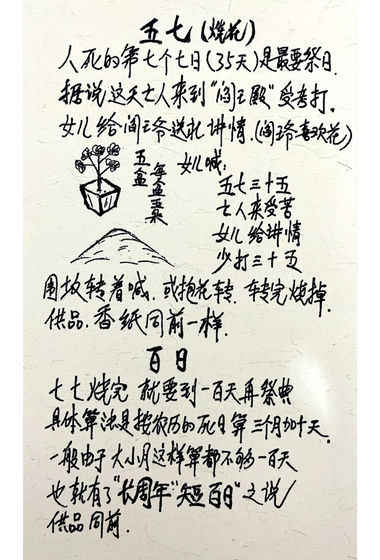 五七(烧花)
人死的第七个七日(35天)是最要祭日.
据说这天亡人来到"阎王殿"受考打.
女儿给阎王爷送礼讲情.(阎王爷喜欢花)
五盆
每盆五朵
女儿喊:
五七三十五
亡人来受苦
女儿给讲情
少打三十五
围坟转着喊.或抱花转.转完烧掉
供品.香纸同前一样.
百日
七七烧完 就要到一百天再祭典
具体算法是按农历的死日算三月加十天.
一般由于大小月这样算都不够一百天
也就有了"长周年""短百日"之说
供品同前.